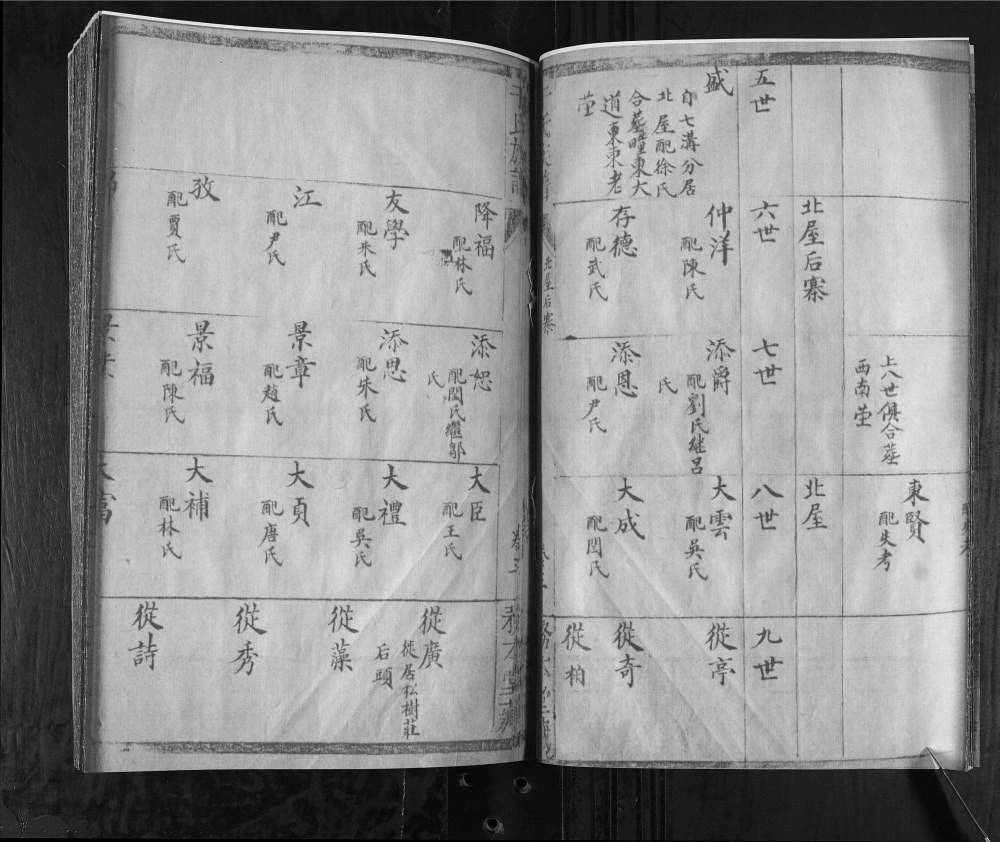 東賢
配失考
上八世俱合葬
西南塋
北屋后寨
北屋
五世
六世
七世
八世
九世
盛
自七溝分居
北屋配徐氏
合葬疃東大
道東東老
塋
仲洋
配陳氏
存德
配武氏
添爵
配劉氏継呂
氏
添恩
配尹氏
大雲
配吳氏
大成
配閔氏
從亭
從奇
從柏
北屋后寨
氏族譜
卷三
降福
配林氏
友學
配朱氏
江
配尹氏
孜
配賈氏
添恕
配閔氏繼鄔
氏
添恩
配朱氏
景章
配趙氏
景福
配陳氏
大臣
配王氏
大禮
配吳氏
大貢
配唐氏
大補
配林氏
從廣
徙居松樹莊
后頭
從藻
從秀
從詩